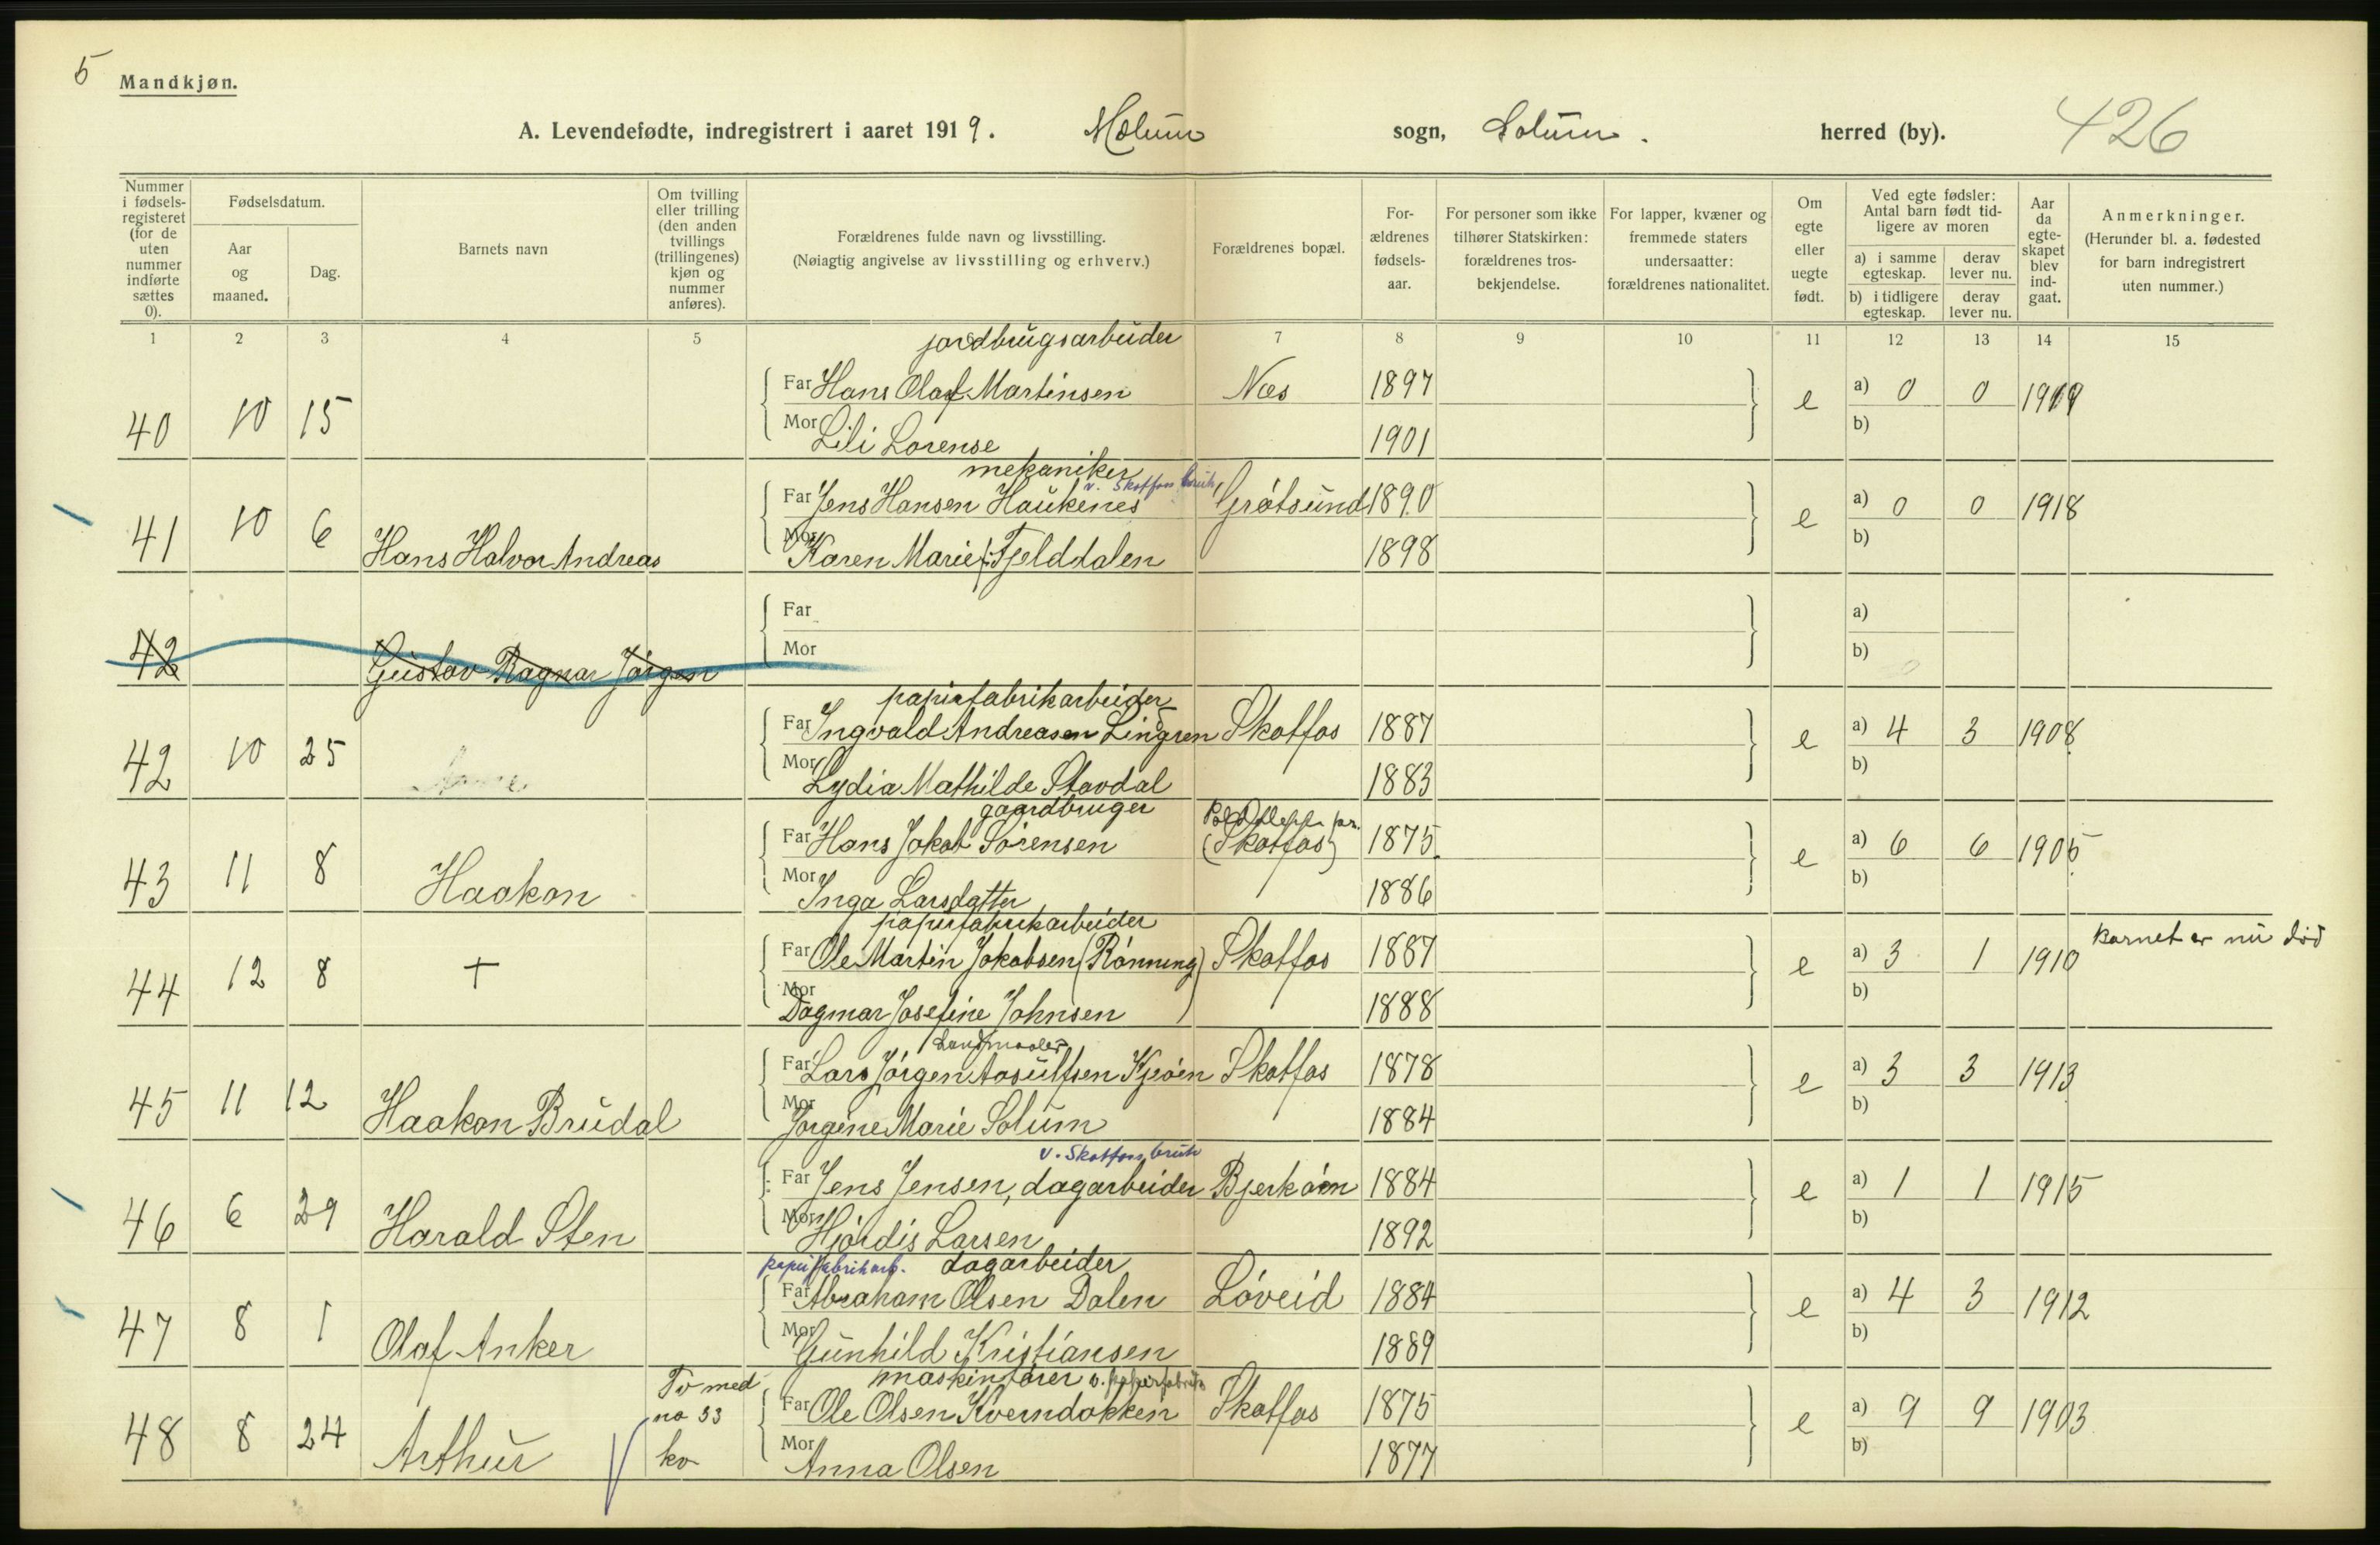 5
Mandkjøn.
A. Levendefødte, indregistrert i aaret 1919. Melum sogn, Solum. herred (by). 426
Nummer i fødsels-registeret (for de uten nummer indførte sættes 0). Fødselsdatum. Aar og maaned. Dag. Barnets navn Om tvilling eller trilling (den anden tvillings (trillingenes) kjøn og nummer anføres). Forældrenes fulde navn og livsstilling. (Nøiagtig angivelse av livsstilling og erhverv.) Forældrenes bopæl. For-ældrenes fødsels-aar. For personer som ikke tilhører Statskirken: forældrenes tros-bekjendelse. For lapper, kvæner og fremmede staters undersaatter: forældrenes nationalitet. Om egte eller uegte født. Ved egte fødsler: Antal barn født tid-ligere av moren a) i samme egteskap. derav lever nu. b) i tidligere egteskap. derav lever nu. Aar da egte-skapet blev ind-gaat. Anmerkninger. (Herunder bl. a. fødested for barn indregistrert uten nummer.)
1 2 3 4 5 7 8 9 10 11 12 13 14 15
jordbrugsarbeider
Far Hans Olaf Martinsen Næs 1897 a) 0 0 1919
40 10 15 e
Mor Lili Lorense 1901 b)
mekaniker v. Skotfos bruk
Far Jens Hansen Haukenes Grøtsund 1890 a) 0 0 1918
41 10 6 Hans Halvor Andreas e
Mor Karen Marie f. Fjelddalen 1898 b)
Far a)
42 Gustav Ragnar Jørgen
Mor b)
papirfabrikarbeider
Far Ingvald Andreasen Lingren Skotfos 1887 a) 4 3 1908
42 10 25 e
Mor Lydia Mathilde Stavdal 1883 b)
gaardbruger
Far Hans Jakob Sørensen (Skotfos) 1875 a) 6 6 1905
43 11 8 Haakon e
Mor Inga Larsdatter 1886 b)
papirfabrikarbeider
Far Ole Martin Jakobsen (Rønning) Skotfos 1887 a) 3 1 1910 barnet er nu död
44 12 8 + e
Mor Dagmar Josefine Johnsen 1888 b)
Landmaaler
Far Lars Jørgen Aasulfsen Kjeøen Skotfos 1878 a) 3 3 1913
45 11 12 Haakon Brudal e
Mor Jørgine Marie Solum 1884 b)
v. Skotfos bruk
Far Jens Jensen, dagarbeider Bjerkøen 1884 a) 1 1 1915
46 6 29 Harald Sten e
Mor Hjørdis Larsen 1892 b)
papirfabrikarb. dagarbeider
Far Abraham Olsen Dalen Løveid 1884 a) 4 3 1912
47 8 1 Olaf Anker e
Mor Gunhild Kristiansen 1889 b)
Tv med maskinfører v. papirfabrik
no 33 Far Ole Olsen Kverndokken Skotfos 1875 a) 9 9 1903
48 8 24 Arthur kv e
Mor Anna Olsen 1877 b)